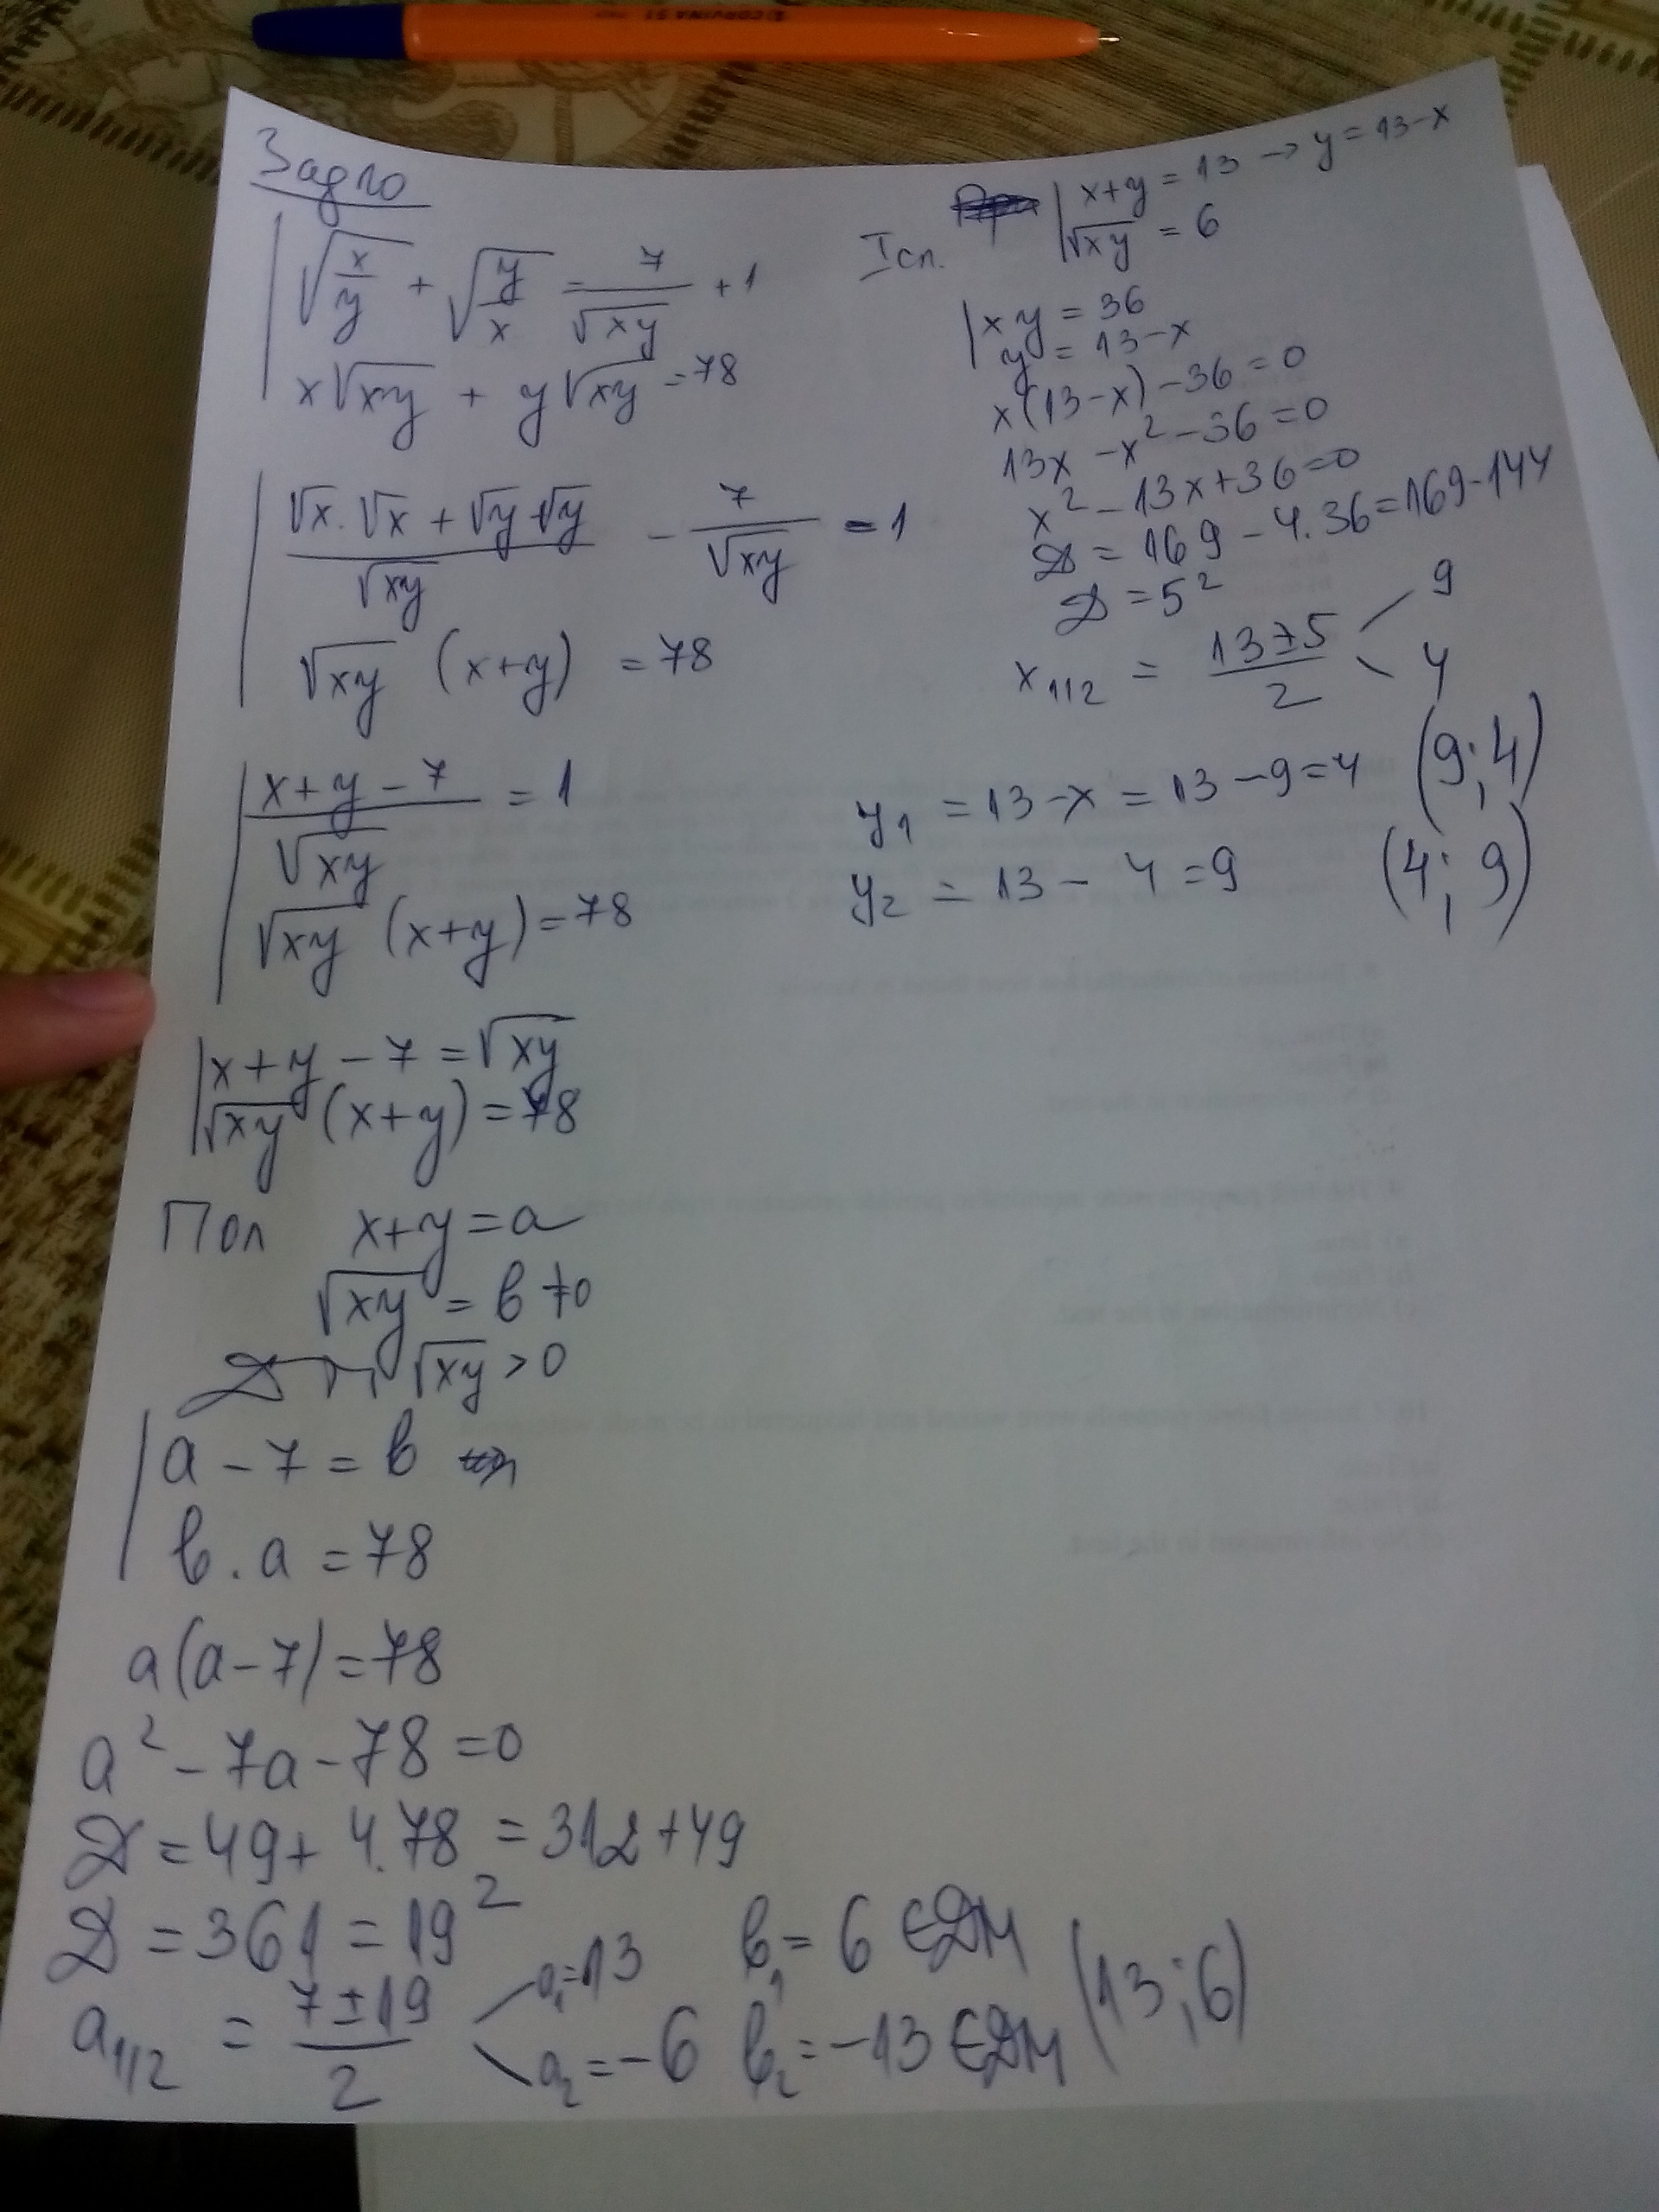 CORVINA 51
Зад10
√(x/y) + √(y/x) = 7/√(xy) + 1
x√(xy) + y√(xy) = 78
(√x.√x + √y.√y)/√(xy) − 7/√(xy) = 1
√(xy) (x+y) = 78
(x+y−7)/√(xy) = 1
√(xy) (x+y) = 78
x+y−7 = √(xy)
√(xy) (x+y) = 78
Пол x+y = a
√(xy) = b ≠ 0
ДМ √(xy) > 0
a − 7 = b
b . a = 78
a(a−7) = 78
a² − 7a − 78 = 0
D = 49 + 4.78 = 312 + 49
D = 361 = 19²
a₁/₂ = (7 ± 19)/2
a₁ = 13 b₁ = 6 ∈ ДМ
a₂ = −6 b₂ = −13 ∈ ДМ
(13; 6)
I сл.
x+y = 13 → y = 13−x
√(xy) = 6
xy = 36
y = 13−x
x(13−x) − 36 = 0
13x − x² − 36 = 0
x² − 13x + 36 = 0
D = 169 − 4.36 = 169 − 144
D = 5²
x₁/₂ = (13 ± 5)/2
9
4
y₁ = 13 − x = 13 − 9 = 4 (9; 4)
y₂ = 13 − 4 = 9 (4; 9)